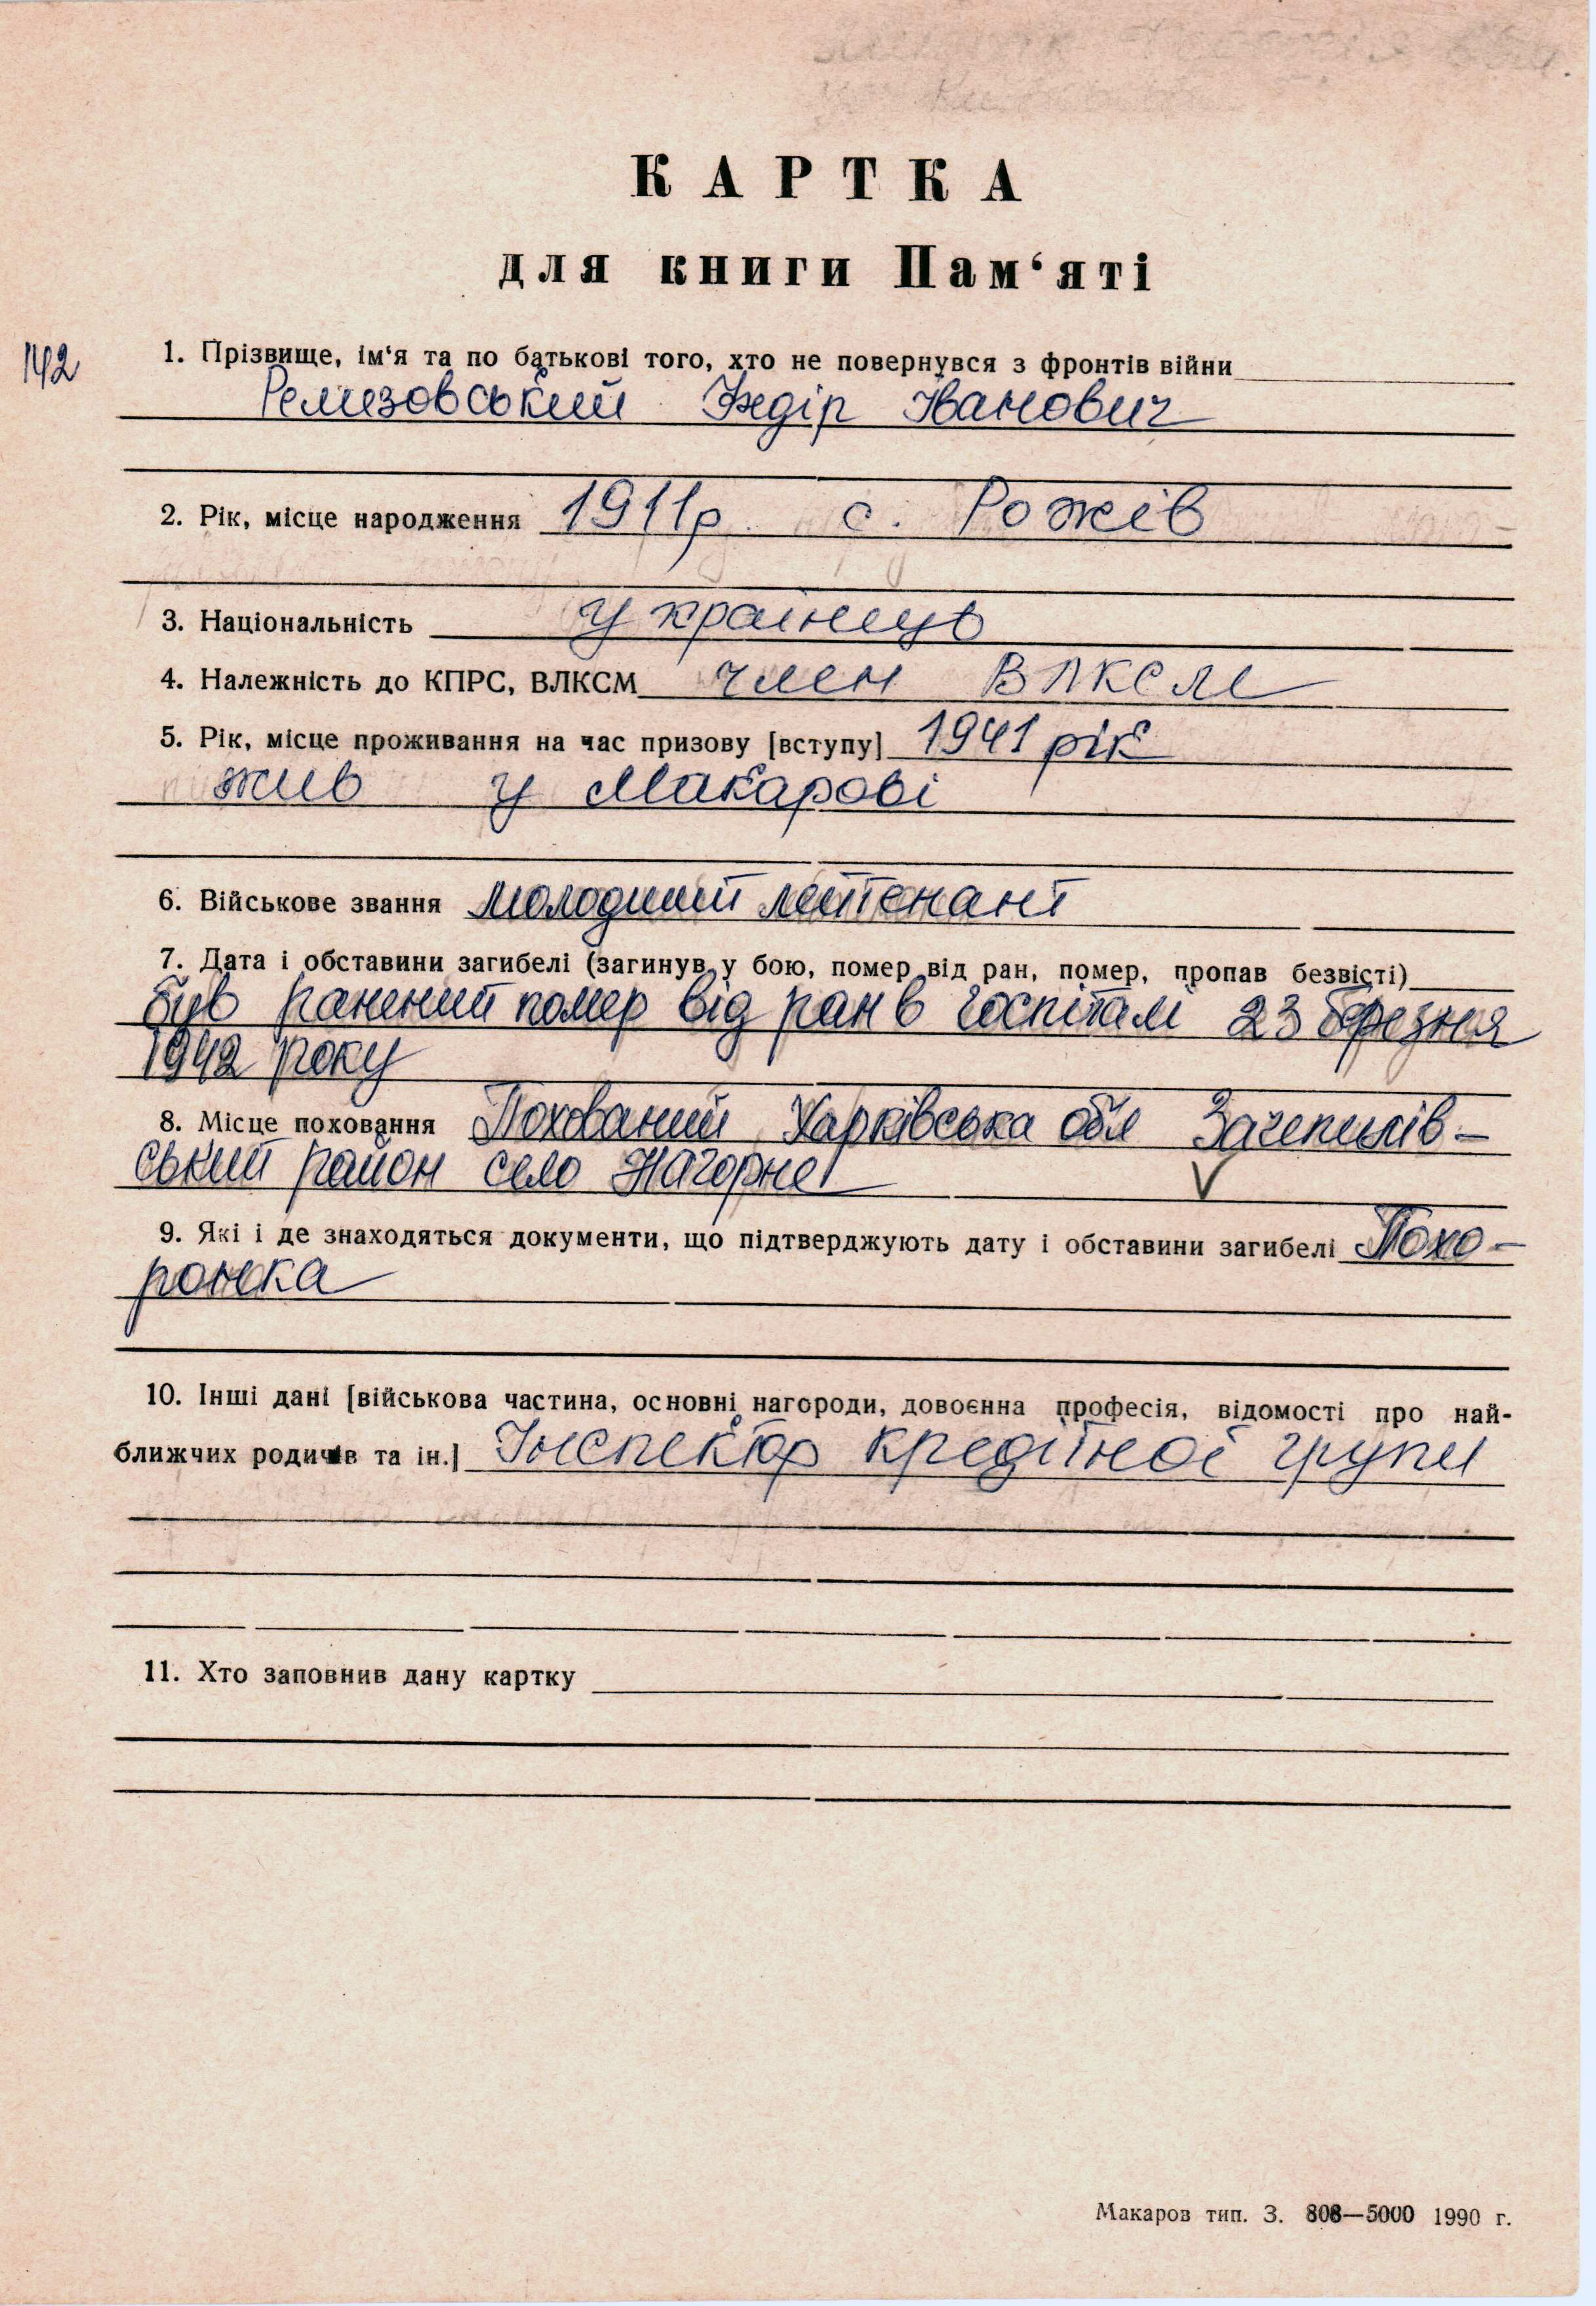 КАРТКА
для книги Пам‘яті
142
1. Прізвище, ім‘я та по батькові того, хто не повернувся з фронтів війни
Ремизовський Федір Іванович
2. Рік, місце народження 1911р. с. Рожів
3. Національність українець
4. Належність до КПРС, ВЛКСМ член ВЛКСМ
5. Рік, місце проживання на час призову [вступу] 1941 рік
жив у Макарові
6. Військове звання молодший лейтенант
7. Дата і обставини загибелі (загинув у бою, помер від ран, помер, пропав безвісті)
був ранений помер від ран в госпіталі 23 березня
1942 року
8. Місце поховання Похований Харківська обл Зачепилів-
ський район село Нагорне
9. Які і де знаходяться документи, що підтверджують дату і обставини загибелі Похо-
ронка
10. Інші дані [військова частина, основні нагороди, довоєнна професія, відомості про най-
ближчих родичів та ін.] Інспектор кредітної групи
11. Хто заповнив дану картку
Макаров тип. З. 808—5000 1990 г.